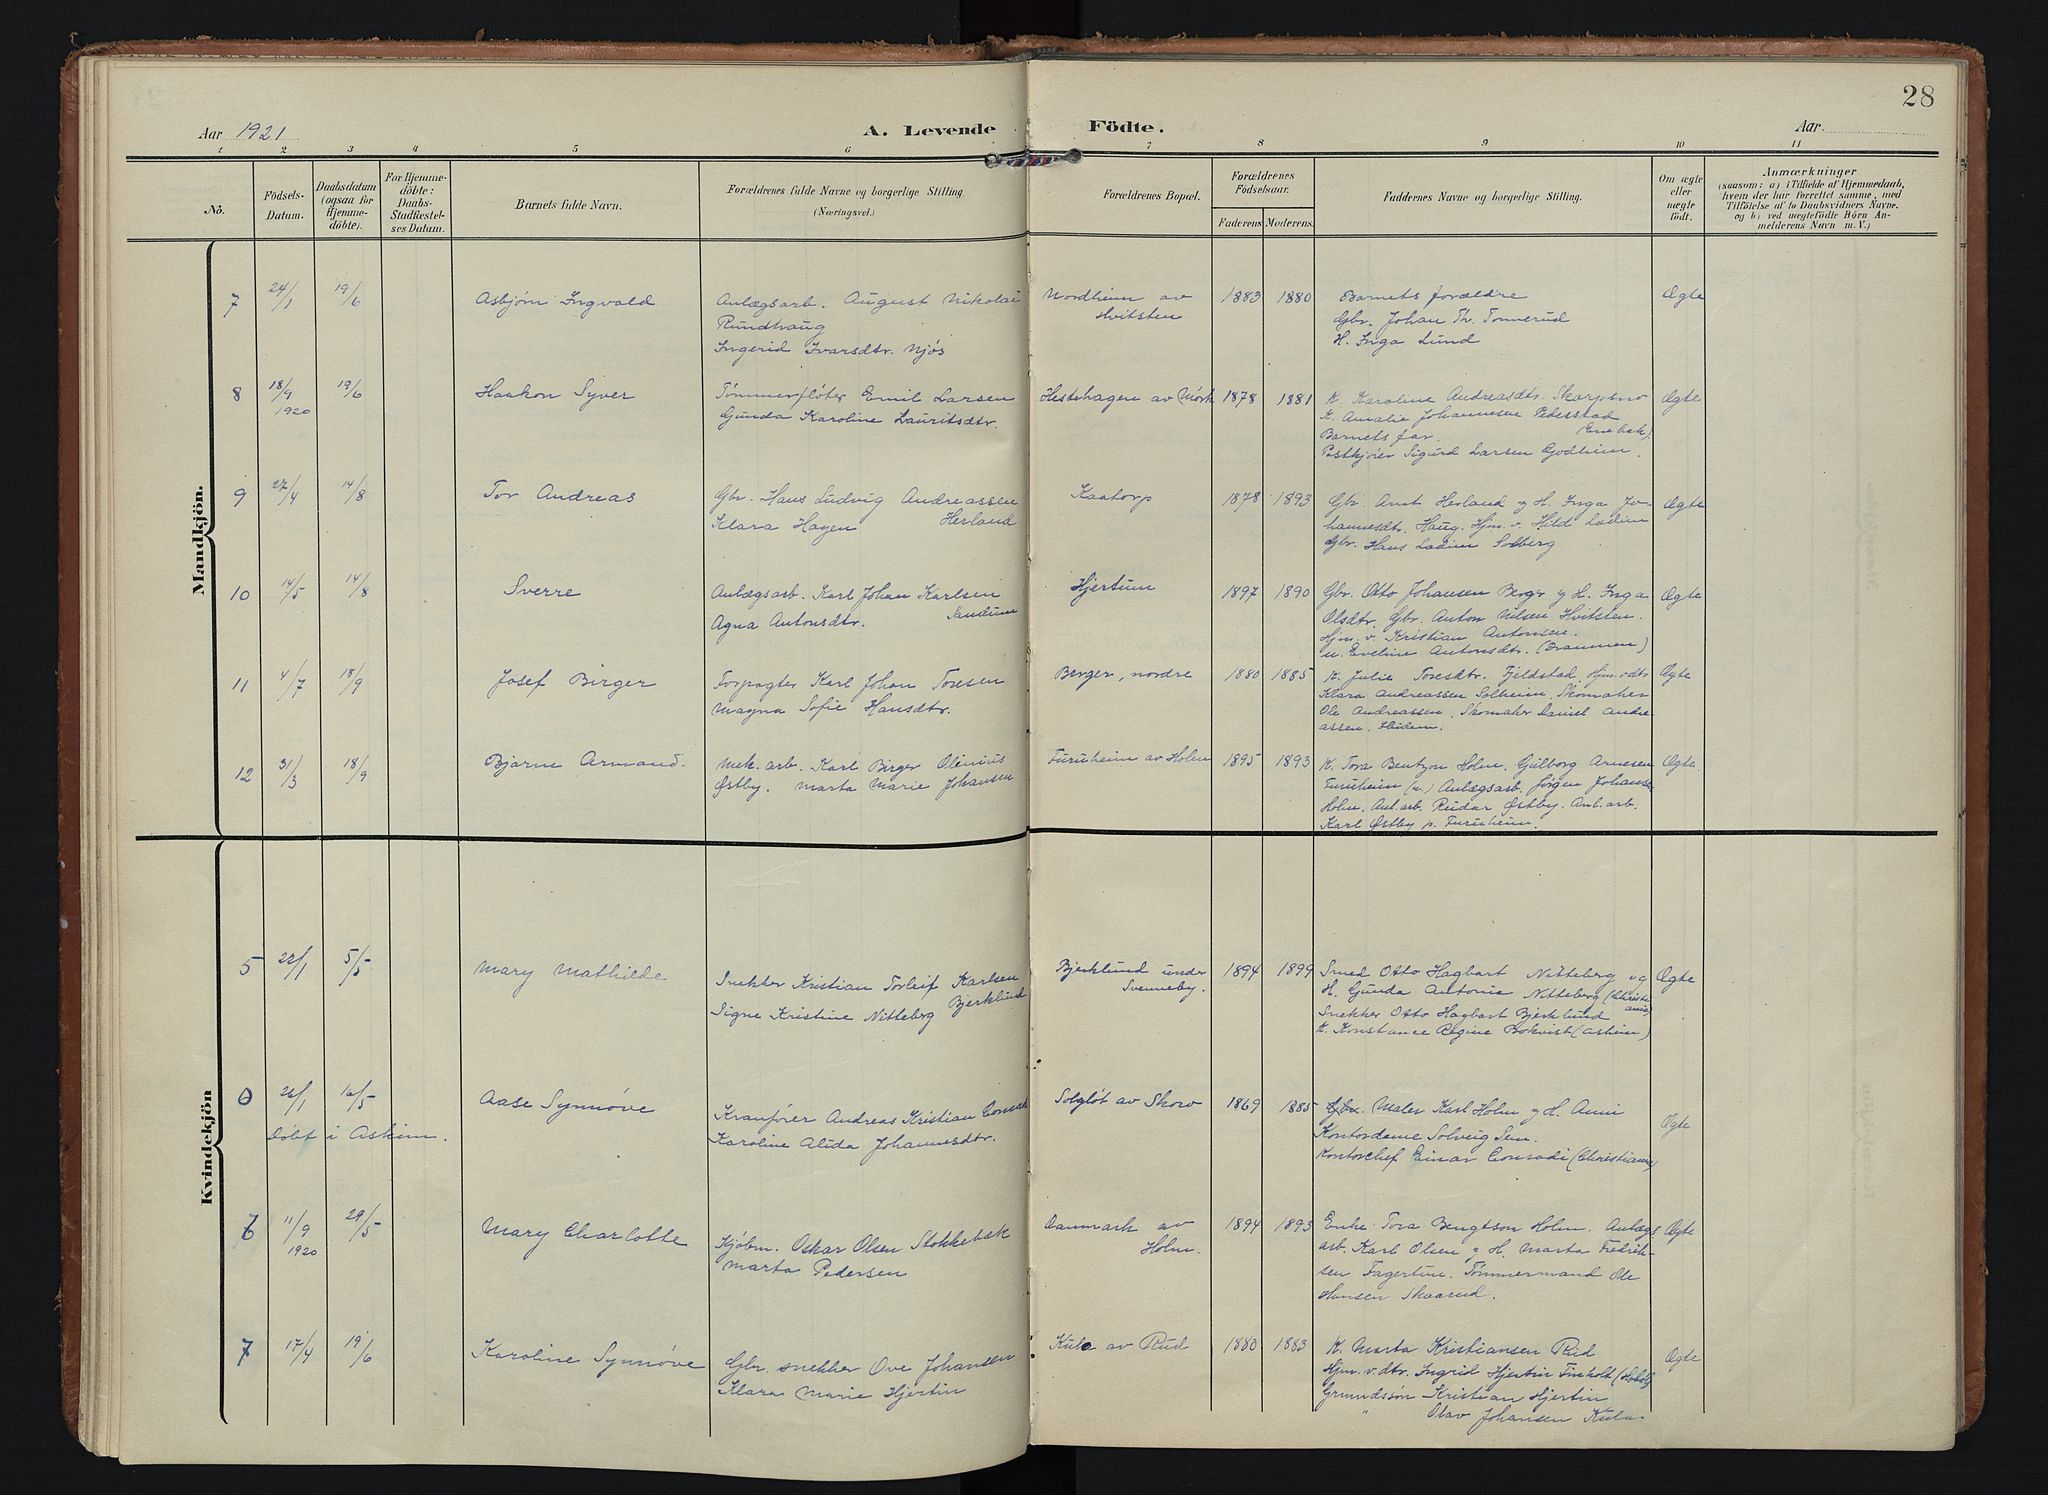 28
Aar 1921
A. Levende Födte.
Aar.
1 2 3 4 5 6 7 8 9 10 11
No.
Födsels-Datum.
Daabsdatum (ogsaa for Hjemmedöbte).
For Hjemmedöbte: Daabs-Stadfestelses Datum.
Barnets fulde Navn.
Forældrenes fulde Navne og borgerlige Stilling. (Næringsvei.)
Forældrenes Bopæl.
Forældrenes Födselsaar.
Faderens Moderens
Faddernes Navne og borgerlige Stilling.
Om ægte eller uægte födt.
Anmærkninger
(saasom: a) i Tilfælde af Hjemmedaab,
hvem der har forrettet samme, med
Tilföielse af to Daabsvidners Navne.
og b) ved uægtefödte Börn An-
melderens Navn m. V.)
Mandkjön.
7 24/1 19/6 Asbjörn Ingvald
Anlægsarb. August Nikolai
Rundhaug
Ingerid Ivarsdtr. Njøs
Nordheim av
Hvitsten
1883 1880
Barnets forældre
Gbr. Johan Th. Tonnerud
H. Inga Lund
Ægte
8 18/9 1920 19/6 Haakon Syver
Tømmerfløter Emil Larsen
Gunda Karoline Lauritsdtr.
Hestehagen av Mörk 1878 1881
K. Karoline Andreasdtr. Skarpsno
K. Amalie Johannesen Pedersstad
(Enebak)
Barnets far.
Postkjører Sigurd Larsen Godheim.
Ægte
9 27/4 14/8 Tor Andreas
Gbr. Hans Ludvig Andreassen
Klara Hagen Herland
Kaatorp 1878 1893
Gbr. Arnt Herland og H. Inga Jo-
hannesdtr. Haug. Hjm. v. Hild Lædim
Gbr. Hans Lædim Solberg
Ægte
10 14/5 14/8 Sverre
Anlægsarb. Karl Johan Karlsen
Agna Antonsdtr. Sandum
Hjertum 1897 1890
Gbr. Otto Johansen Berger og H. Inga
Olsdtr. Gbr. Anton Nilsen Hvitsten.
Hjm. v. Kristian Antonsen.
u. Eveline Antonsdtr. (Drammen)
Ægte
11 4/7 18/9 Josef Birger
Forpagter Karl Johan Toresen
Magna Sofie Hansdtr.
Berger, nordre 1880 1885
K. Julie Toresdtr. Fjeldstad Hjm. v. dtr
Klara Andreassen Solheim. Skomaker
Ole Andreassen. Skomaker Daniel Andre-
assen.
Ægte
12 31/3 18/9 Bjarne Armand.
Mek. arb. Karl Birger Olinius
Østby. Marta Marie Johansen
Furuheim av Holm 1895 1893
K. Tora Bentzon Holm. Gulborg Arnesen
Furuheim (u.) Anlægsarb. Jørgen Johansen
Holm. Anl. arb. Reidar Østby. Anl. arb.
Karl Østby p. Furuheim.
Ægte.
Kvindekjön
5 22/1 5/5 Mary Mathilde.
Snekker Kristian Torleif Karlsen
Bjerklund
Signe Kristine Nitteberg
Bjerklund under
Svenneby.
1894 1899
Smed Otto Hagbart Nitteberg og
H. Gunda Antonie Nitteberg (Christi-
ania)
Snekker Otto Hagbart Bjerklund
K. Konstance Regine Bokvist (Askim)
Ægte
0 26/1 16/5 Aase Synnöve
Döbt i Askim.
Kranfører Andreas Kristian Conradi
Karoline Alida Johannesdtr.
Solgløt av Skow 1869 1885
Gbr. Maler Karl Holm og H. Anni
Kontordame Solveig Sem.
Kontorchef Einar Conradi (Christiania)
Ægte
6 11/9 1920 29/5 Mary Charlotte
Kjøbm. Oskar Olsen Stokkebæk
Marta Pedersen
Danmark av
Holm.
1894 1893
Enke Tora Bengtson Holm. Anlægs-
arb. Karl Olsen og H. Marta Fredrik-
sen Fagertun. Tømmermand Ole
Hansen Skaarud.
Ægte
7 17/4 19/6 Karoline Synnøve
Gbr. snekker Ove Johansen
Klara Marie Hjertin
Kula av Rud 1880 1883
K. Marta Kristiansen Rud
Hjm. v. dtr. Ingrid Hjertin Tinholt (Hobøl)
Grundssøn Kristian Hjertin
" Olav Johansen Kula
Ægte